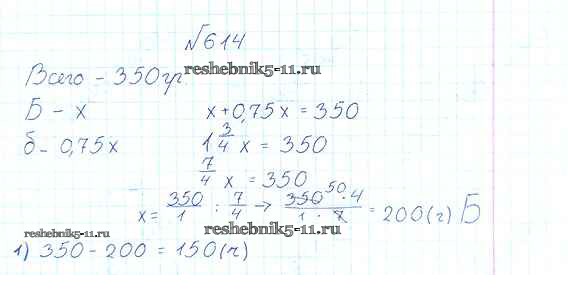 №614
reshebnik5-11.ru
Всего - 350 гр.
Б - x
x + 0,75x = 350
б - 0,75x
1 3/4 x = 350
7/4 x = 350
x = 350/1 : 7/4 → 350 50 · 4 / 1 · 7 = 200 (г) Б
reshebnik5-11.ru
reshebnik5-11.ru
1) 350 - 200 = 150 (г)